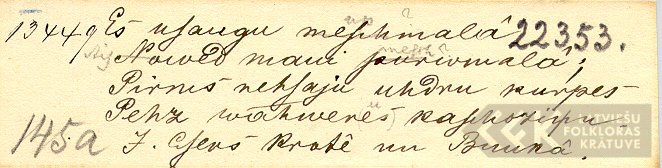 13449 Eś usaugu meschmalâ 22353.
Nowed mani purwmalâ;
Pirms nehsaju uhdru kurpes
Pehz wahweres kaschoziņu
145a J. Esers Krotê un Bunkâ.
LATVIEŠU
FOLKLORAS
KRATUVE